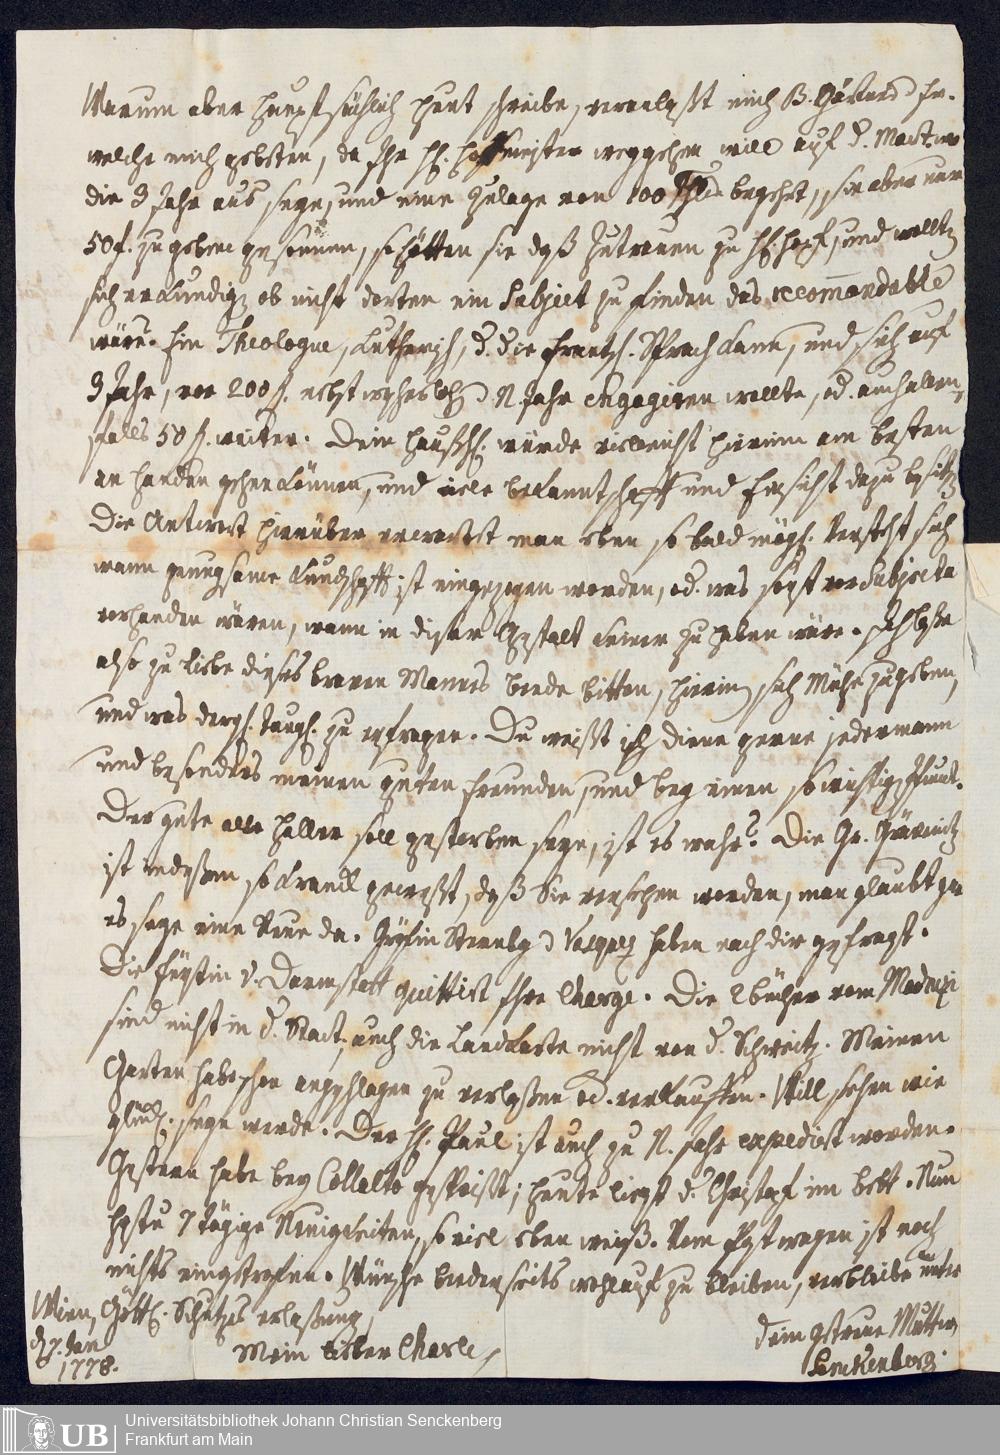 Warum aber haupts sächlich heut schreibe, veranlaßt mich B. Gärtner d Fr.
welche mich gebetten, da Ihr H. Hoffmeister weggehen will auf d. Mart. wo
die 3 Jahr aus seyn, und eine Zulage von 100 Thlr begehrt, sie aber nur
50 f. zu geben gesonnen, so hätten sie das Zutrauen zu H. Hopf, und wollten
sich erkundig, ob nicht dorten ein Subject zu finden das recommendable
wäre. Ein Theologue, Lutherisch, d. die frantzß. Sprach kann, und sich auf
3 Jahr, vor 200 f. nebst d N. Jahr engagiren wollte, od. auch allen-
falls 50 f. weiter. Dein Haußh. würde vielleicht hierinn am besten
an handen gehen können, und viele bekanntschafft und Einsicht dazu besitzt
Die Antwort hierüber erwartet man eben so bald mögl. Versteht sich
wann genugsame Kundschafft ist eingezogen worden, od. was sonst vor Subjecta
vorhanden wären, wann in diser Gestalt keiner zu haben wäre.
also zu Liebe dieses braven Mannes beede bitten, hierin sich Mühe zu geben,
und was dergl. taugl. zu erfragen. Du weißt ich diene gerne jedermann
und besonders meinen guten freunden, und bey einem so wichtig Punct.
Der gute alte Haller soll gestorben seyn, ist es wahr? Die Gr.
ist indeßen so kranck geweßt, daß Sie versehen worden, man glaubt gar
es seye eine Ruue da. Gräfin Sternbg d Vasquez haben nach dir gefragt.
Die fürstin v. Darmstatt quittirt Ihre Charge. Die 2 bücher vom
sind nicht in d. Statt, auch die Landkarte nicht von d. Schweitz. Meinen
Garten habe schon angeschlagen zu verlaßen od. verkauffen. Will sehen wie
glückl. seyn werde. Der H. Paul ist auch zu N. Jahr expedirt worden.
Gestern habe bey Collalto gespeißt; heute liegt d. Christoph im bett. Nun
hastu 7 tägige Neuigkeiten, so viel eben weiß. Vom Postwagen ist noch
nichts eingetrofen. Wünsche beederseits wohlauf zu bleiben, verbleibe unter
Wien, Göttl. Schutzes erlaßung,
d 7. Jan
1778.
Mein lieber Charle,
dein getreue Mutter
Senckenberg.
Universitätsbibliothek Johann Christian Senckenberg
Frankfurt am Main
UB